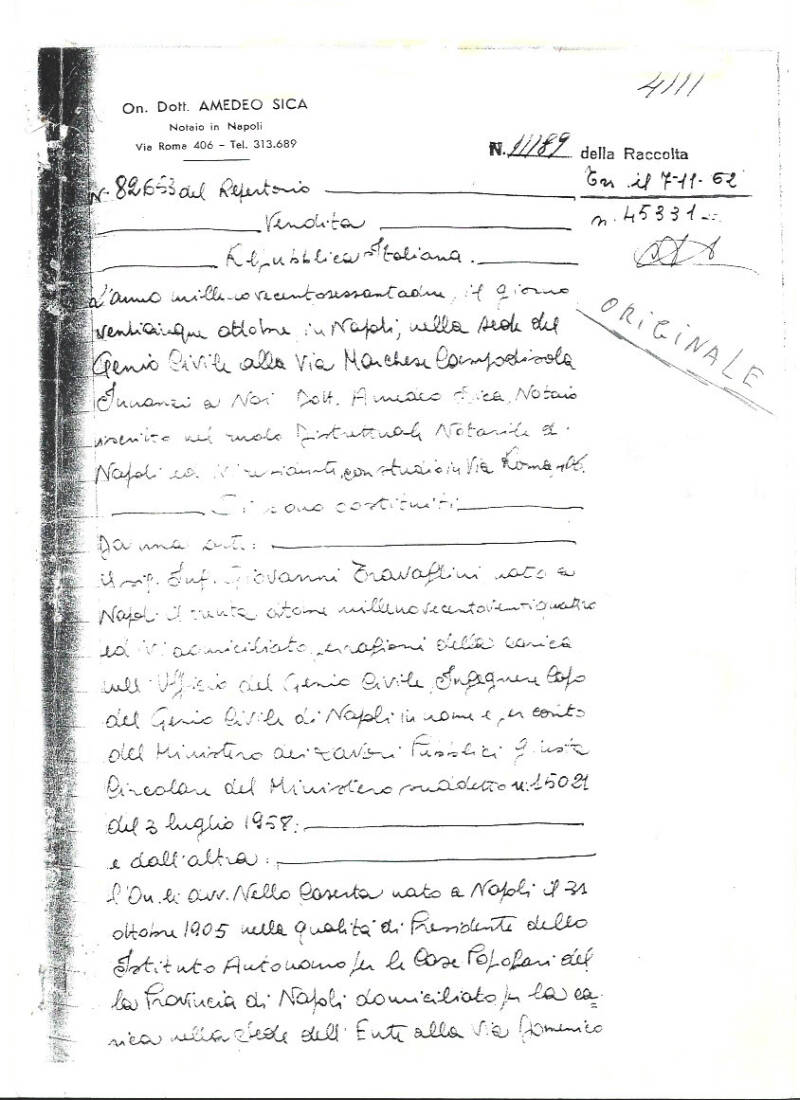 4111
On. Dott. AMEDEO SICA
Notaio in Napoli
Via Roma 406 - Tel. 313.689
N. 11189 della Raccolta
N. 82653 del Repertorio
il 7-11-62
n. 45331
Vendita
Repubblica Italiana.
ORIGINALE
L'anno millenovecentosessantadue, il giorno
venticinque ottobre, in Napoli, nella sede del
Genio Civile alla Via Marchese Campodisola
Innanzi a Noi Dott. Amedeo Sica, Notaio
iscritto nel ruolo Distrettuale Notarile di
Napoli ed ivi residente, con studio in Via Roma 406.
Si sono costituiti
Da una parte:
il sig. Ing. Giovanni Travaglini nato a
Napoli il trenta ottobre millenovecentoventiquattro
ed ivi domiciliato per ragioni della carica
nell'Ufficio del Genio Civile, Ingegnere Capo
del Genio Civile di Napoli in nome e per conto
del Ministero dei Lavori Pubblici giusta
Circolare del Ministero suddetto n. 15021
del 3 luglio 1958.
e dall'altra:
l'On.le avv. Nello Caserta nato a Napoli il 31
ottobre 1905 nella qualità di Presidente dello
Istituto Autonomo per le Case Popolari del
la Provincia di Napoli domiciliato per la ca=
rica nella Sede dell'Ente alla Via Domenico